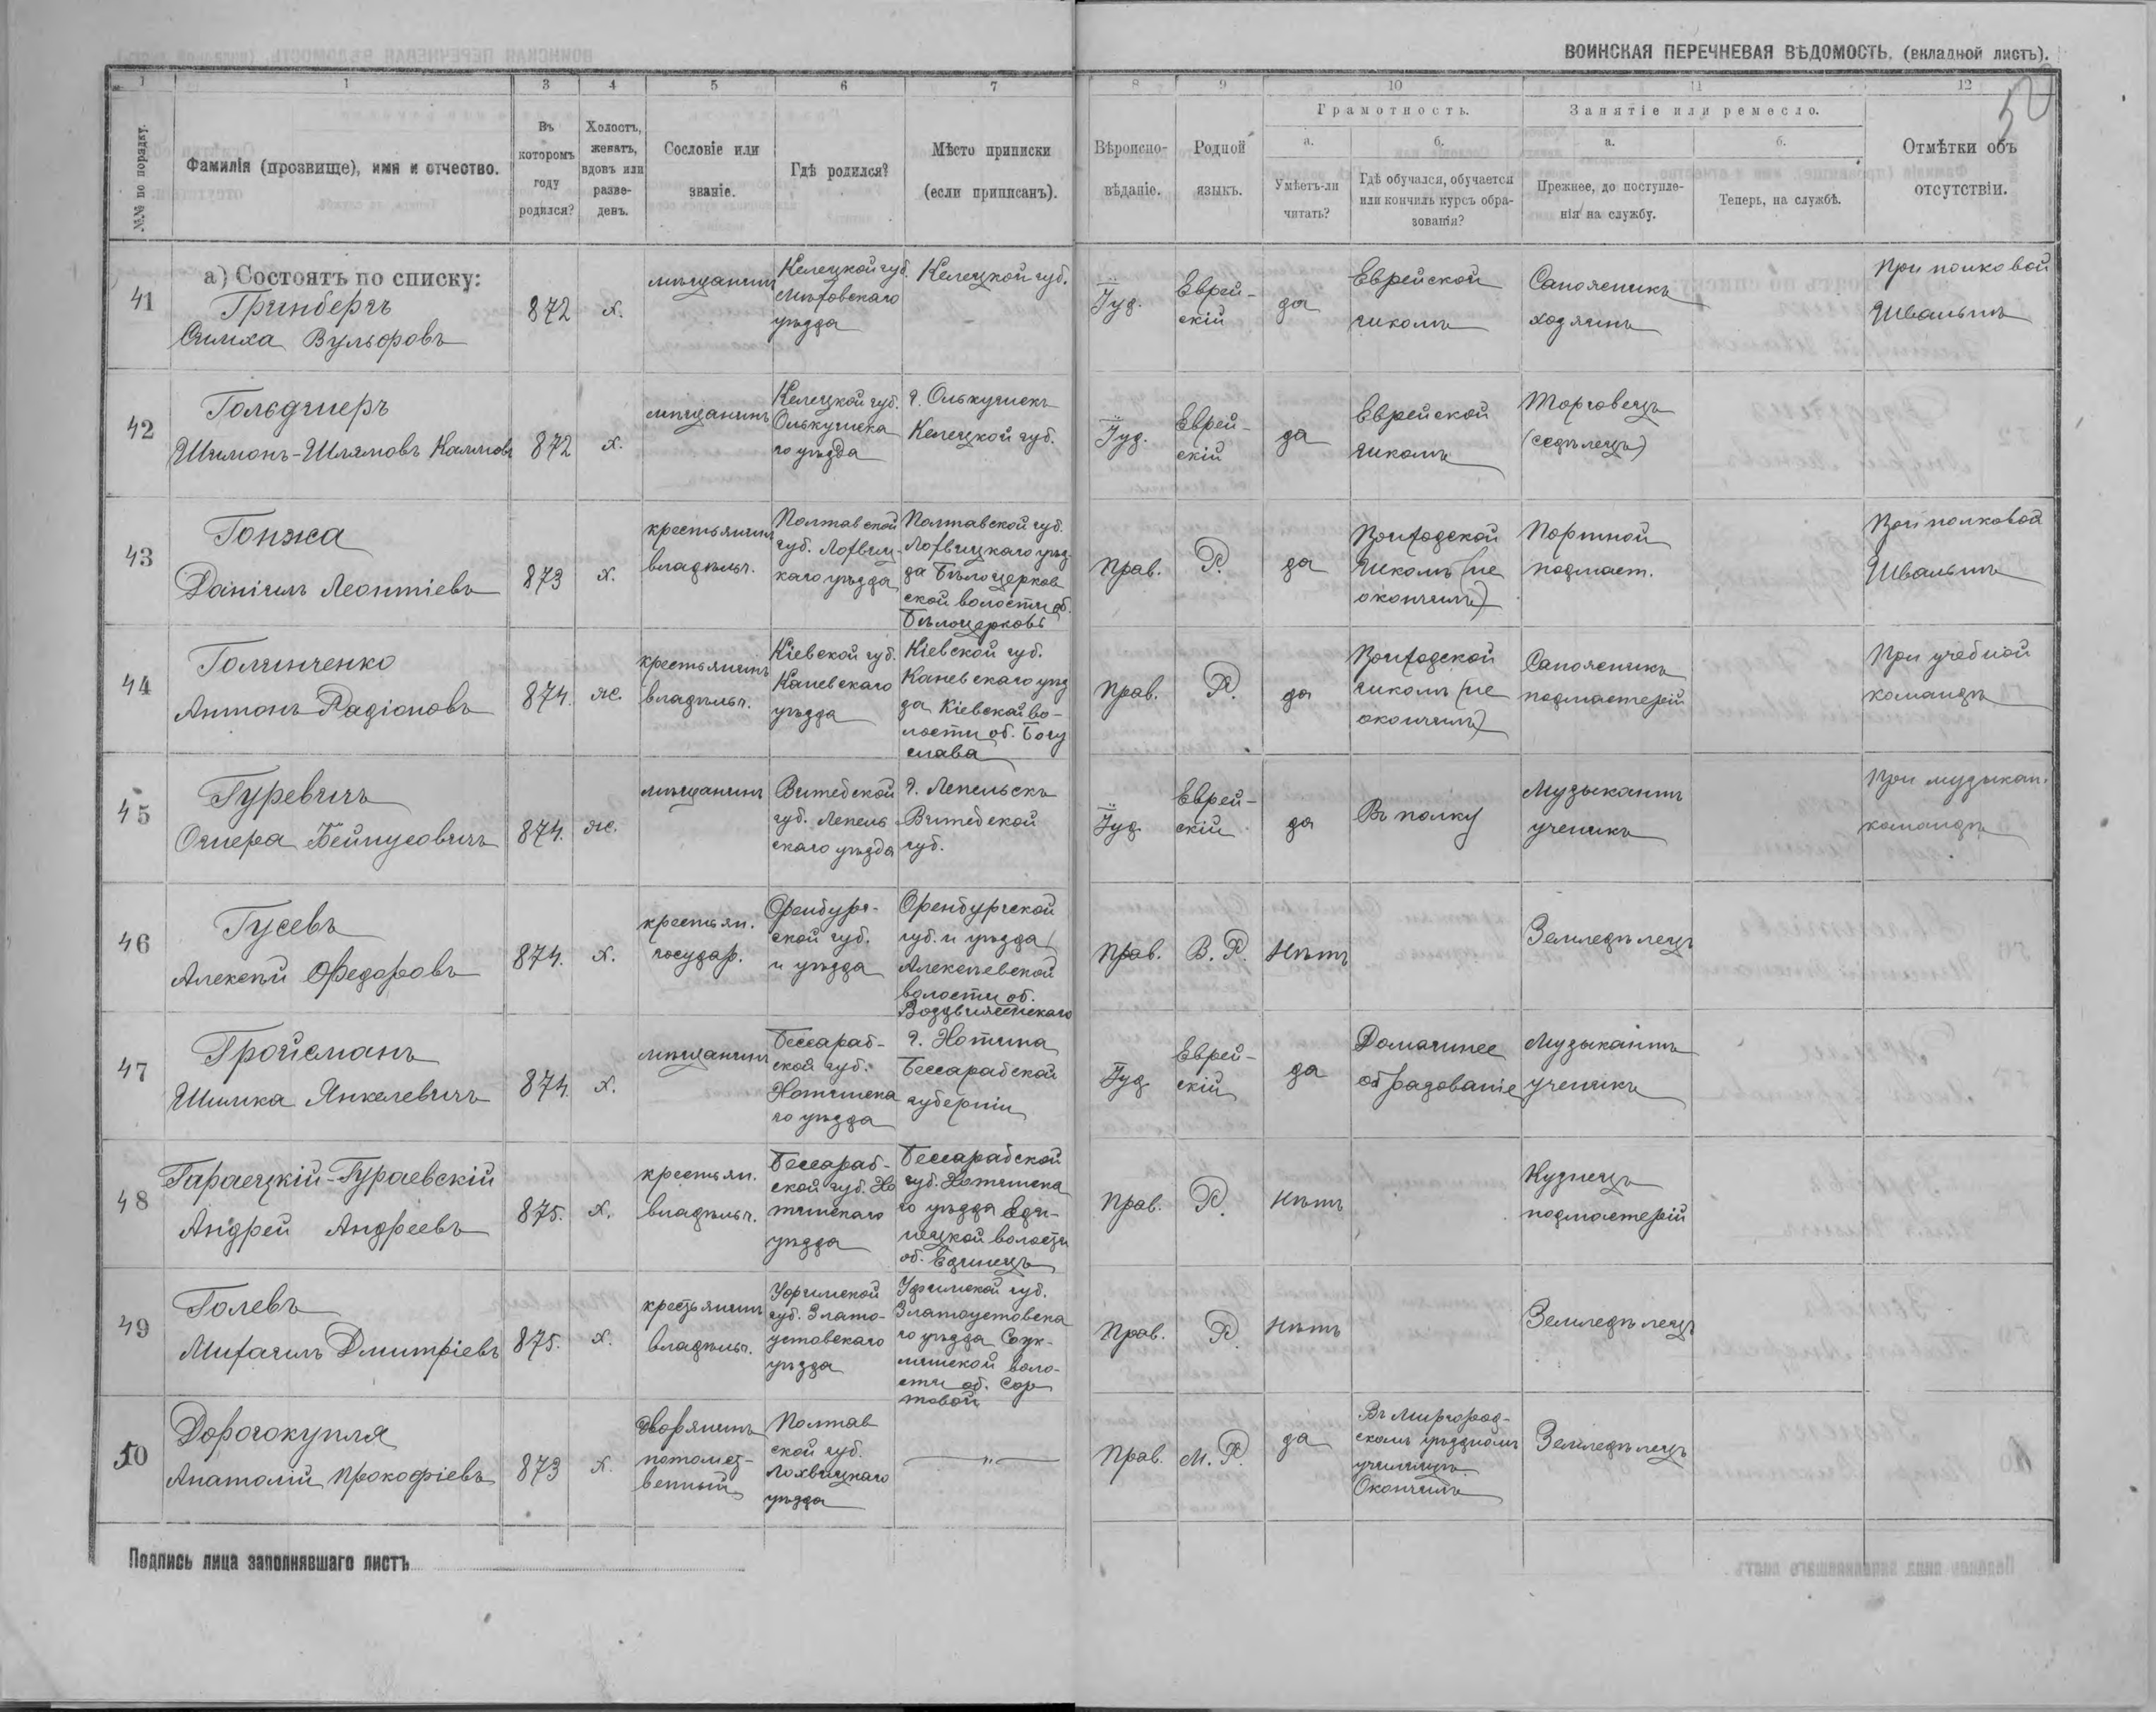 ВОИНСКАЯ ПЕРЕЧНЕВАЯ ВѢДОМОСТЬ. (вкладной листъ).
52
1 1 3 4 5 6 7 8 9 10 11 12
№№ по порядку.
Фамилія (прозвище), имя и отчество.
Въ
которомъ
году
родился?
Холостъ,
женатъ,
вдовъ или
разве-
денъ.
Сословіе или
званіе.
Гдѣ родился?
Мѣсто приписки
(если приписанъ).
Вѣроиспо-
вѣданіе.
Родной
языкъ.
Грамотность.
а.
Умѣетъ-ли
читать?
б.
Гдѣ обучался, обучается
или кончилъ курсъ обра-
зованія?
Занятіе или ремесло.
а.
Прежнее, до поступле-
нія на службу.
б.
Теперь, на службѣ.
Отмѣтки объ
отсутствіи.
а) Состоятъ по списку:
41
Гринбергъ
Симха Вульфовъ
872
х.
мѣщанинъ
Келецкой губ.
Мѣховскаго
уѣзда
Келецкой губ.
Іуд.
Еврей-
скій
да
Еврейской
школѣ
Сапожникъ
ходячинъ
При полковой
Швальнѣ
42
Гольдшеръ
872
х.
мѣщанинъ
Келецкой губ.
Олькушска
го уѣзда
г. Олькушскъ
Келецкой губ.
Іуд.
Еврей-
скій
да
Еврейской
школѣ
Торговецъ
43
Гонжа
Даніилъ Леонтіевъ
873
х.
крестьянинъ
владѣльч.
Полтавской
губ. Лохвиц-
каго уѣзда
Полтавской губ.
Лохвицкаго уѣз
да Бѣлоцерков
ской волости об.
Бѣлоцерковъ
Прав.
Р.
да
Приходской
школѣ (не
окончилъ)
Портной
подмаст.
При полковой
Швальнѣ
44
Голинченко
Антонъ Радіоновъ
874.
ж.
крестьянинъ
владѣльч.
Кіевской губ.
Каневскаго
уѣзда
Кіевской губ.
Каневскаго уѣз
да Кіевской во-
лости об. Богу
слава
Прав.
Р.
да
Приходской
школѣ (не
окончилъ)
Сапожникъ
подмастерій
При учебной
командѣ
45
Гуревичъ
Ошера Бейнусовичъ
874.
ж.
мѣщанинъ
Витебской
губ. Лепель
скаго уѣзда
г. Лепельскъ
Витебской
губ.
Іуд.
Еврей-
скій
да
Въ полку
Музыкантъ
ученикъ
При музыкан.
командѣ
46
Гусевъ
Алексѣй Ѳедоровъ
874.
х.
крестьян.
государ.
Оренбург-
ской губ.
и уѣзда
Оренбургской
губ. и уѣзда
Алексѣевской
волости об.
Воздвиженскаго
Прав.
В. Р.
Нѣтъ
Земледѣлецъ
47
Гройсманъ
Шимка Янкелевичъ
874.
х.
мѣщанинъ
Бессараб-
ской губ.
Хотинска
го уѣзда
г. Хотина
Бессарабской
губерніи
Іуд.
Еврей-
скій
да
Домашнее
образованіе
Музыкантъ
ученикъ
48
Гараецкій-Гураевскій
Андрей Андреевъ
875.
х.
крестьян.
владѣльч.
Бессараб-
ской губ. Хо
тинскаго
уѣзда
Бессарабской
губ. Хотинска
го уѣзда Еди-
нецкой волости
об. Единецъ
Прав.
Р.
Нѣтъ
Кузнецъ
подмастерій
49
Голевъ
Михаилъ Дмитріевъ
875.
х.
крестьянинъ
владѣльч.
Уфимской
губ. Злато-
устовскаго
уѣзда
Уфимской губ.
Златоустовска
го уѣзда
волo-
сти об.
Прав.
Р.
Нѣтъ
Земледѣлецъ
50
Дорогокупля
Анатолій Прокофіевъ
873
х.
дворянинъ
потомст-
венный
Полтав
ской губ.
Лохвицкаго
уѣзда
— „ —
Прав.
М. Р.
да
Въ Миргород-
скомъ уѣздномъ
училищѣ.
Окончилъ
Земледѣлецъ
Подпись лица заполнявшаго листъ